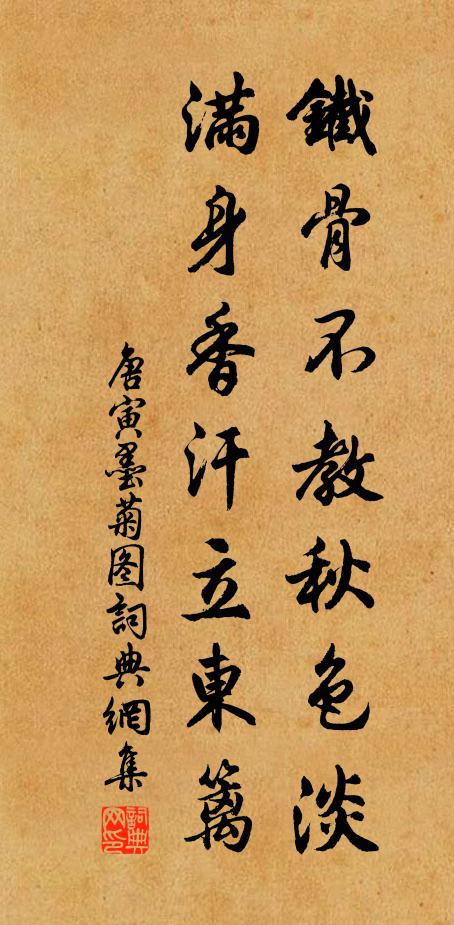 鐵骨不教秋色淡
滿身香汗立東篱
唐寅墨菊图詞典網集
詞典网印